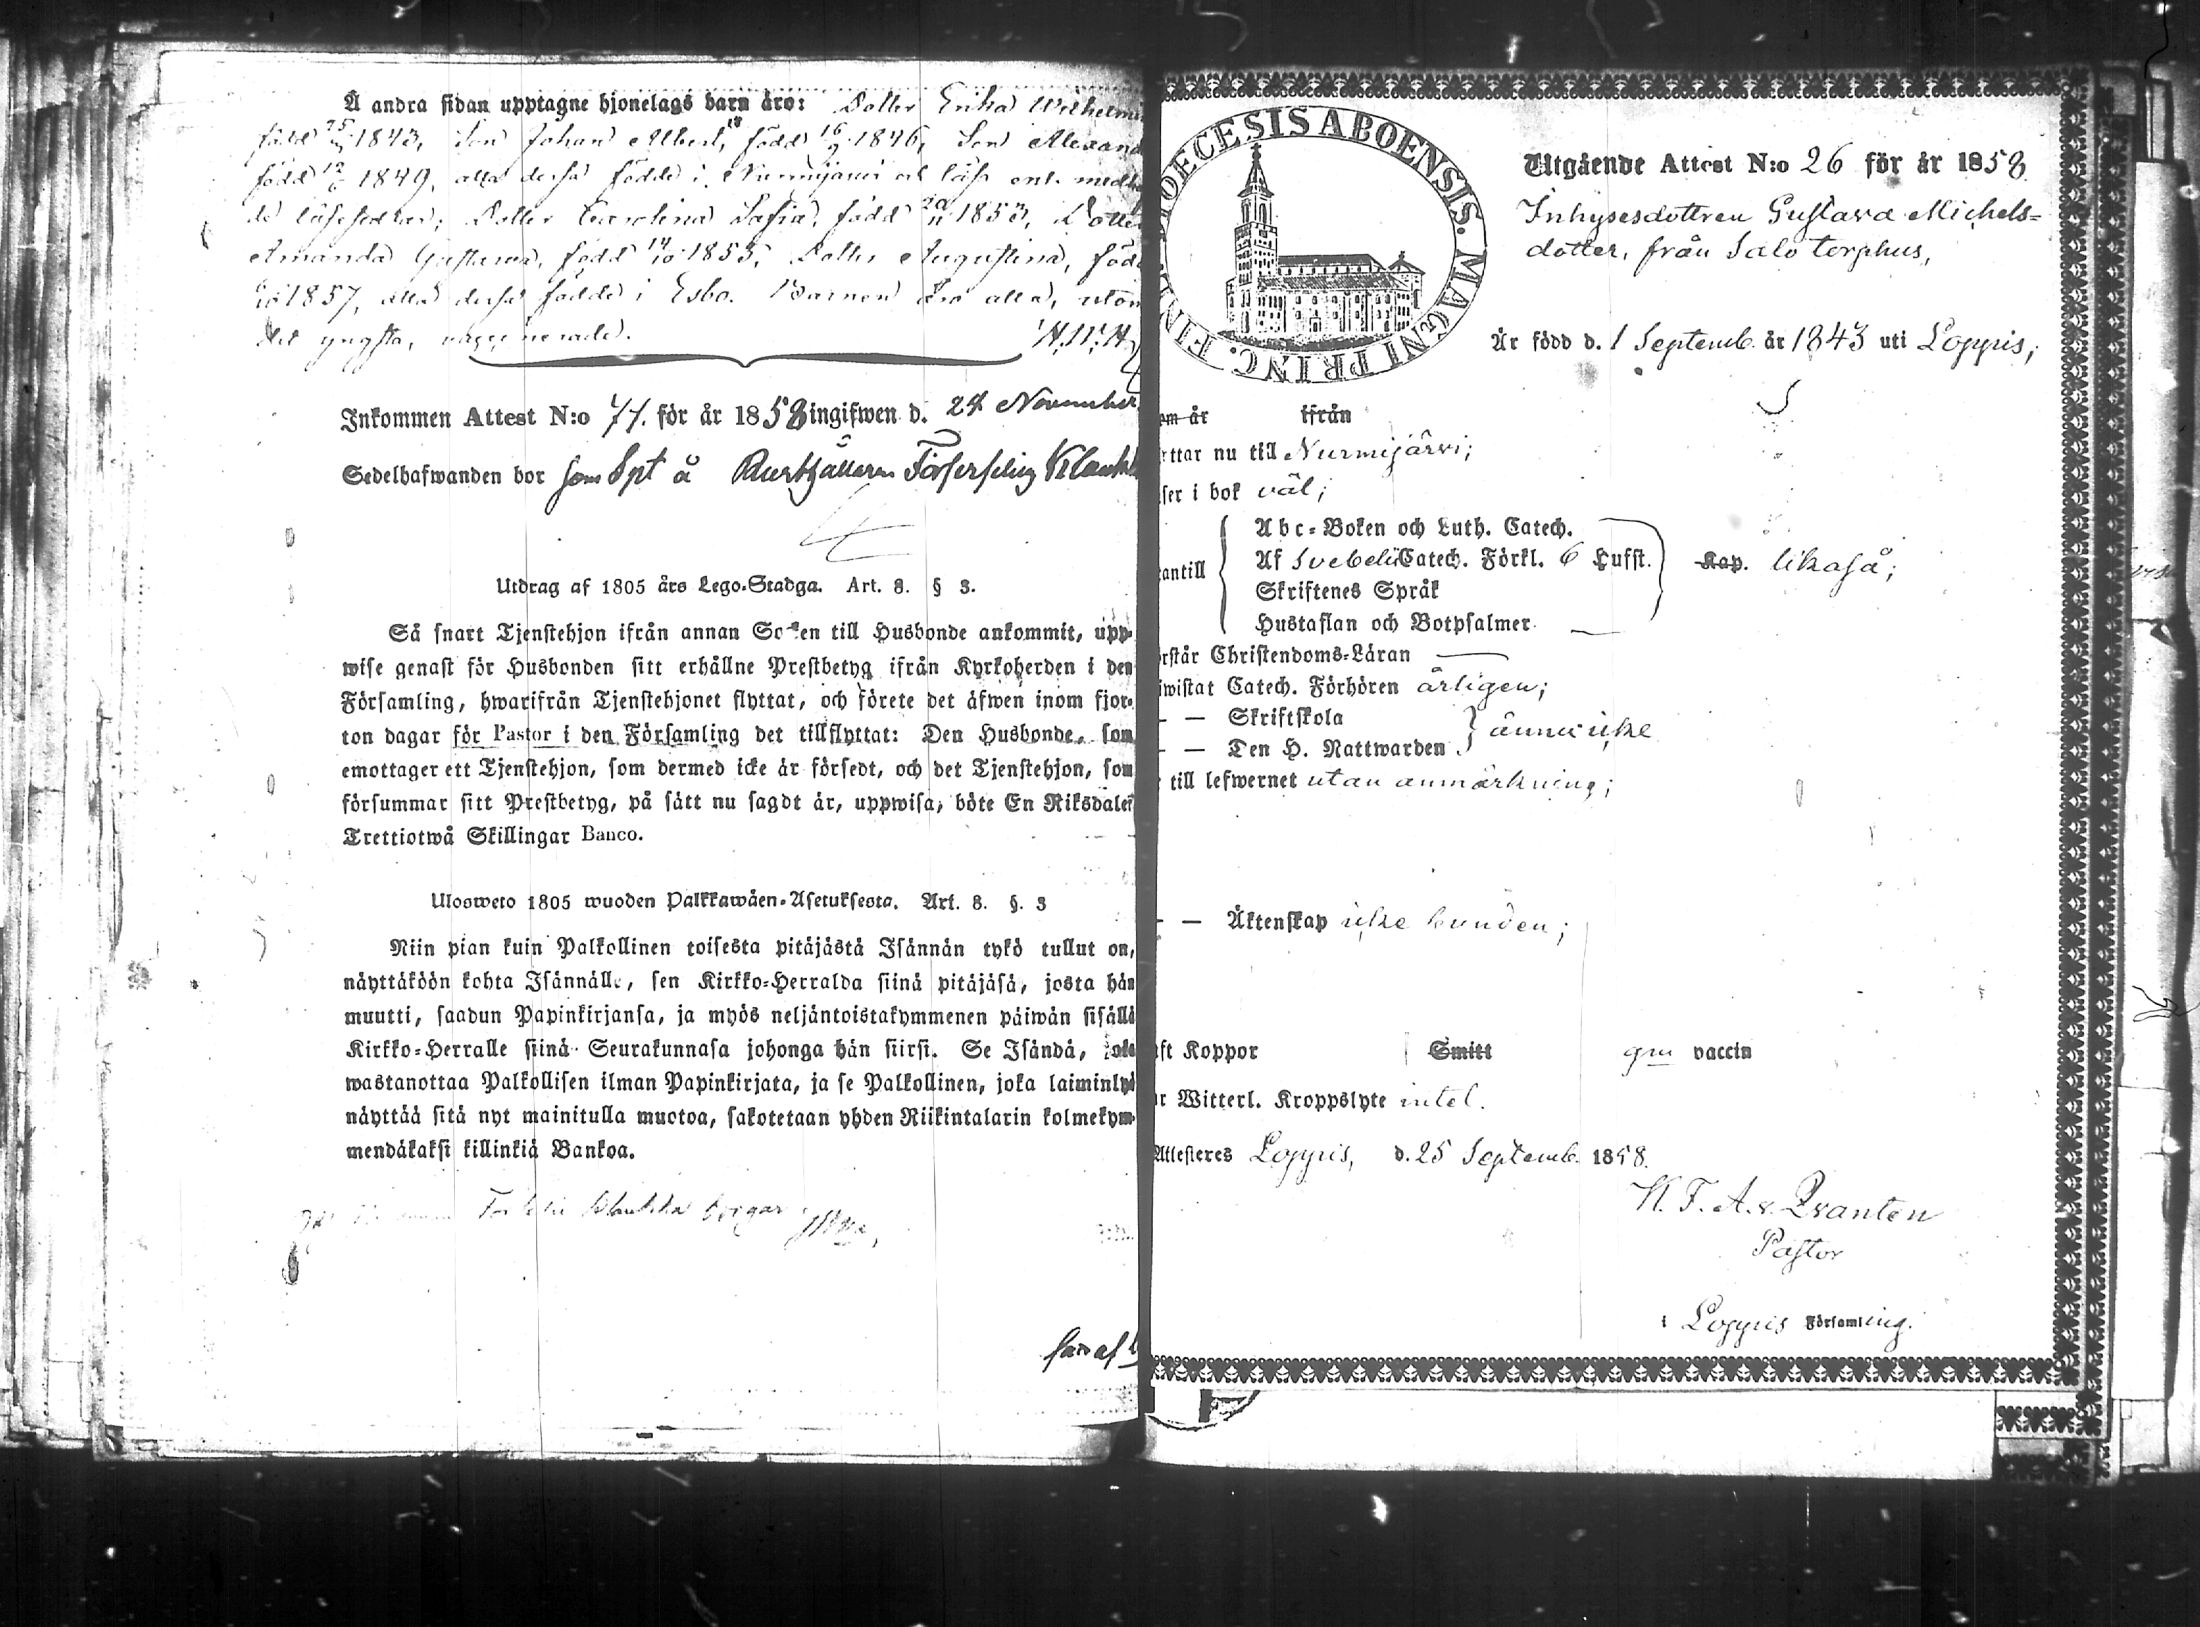 Å andra sidan upptagne hjonelags barn äro: Dotter Erika Wilhelmi
född 1843, Son Johan Albert, född 16/9 1846, Son Alexand
född 1849, alla dessa födde i Nurmijärvi och läsa enl. medt
de läsesedlar; Dotter Carolina Sofia, född 20/11 1853, Dotter
Amanda Gustava, född 14/10 1855, Dotter Augustina, född
1857, alla dessa födde i Esbo. Barnen äro alla, utom
det yngsta, vaccinerade.
Inkommen Attest N:o 77. för år 1858 ingifwen d. 24 November
Sedelhafwanden bor som Spt å
Utdrag af 1805 års Lego-Stadga. Art. 8. § 3.
Så snart Tjenstehjon ifrån annan Socken till Husbonde ankommit, upp-
wise genast för Husbonden sitt erhållne Prestbetyg ifrån Kyrkoherden i den
Församling, hwarifrån Tjenstehjonet flyttat, och förete det äfwen inom fjor-
ton dagar för Pastor i den Församling det tillflyttat: Den Husbonde, som
emottager ett Tjenstehjon, som dermed icke är försedt, och det Tjenstehjon, som
försummar sitt Prestbetyg, på sätt nu sagdt är, uppwisa, böte En Riksdaler
Trettiotwå Skillingar Banco.
Ulosweto 1805 wuoden Palkkawäen-Asetuksesta. Art. 8. §. 3
Niin pian kuin Palkollinen toisesta pitäjästä Isännän tykö tullut on,
näyttäköön kohta Isännälle, sen Kirkko-Herralda siinä pitäjäsä, josta hän
muutti, saadun Papinkirjansa, ja myös neljäntoistakymmenen päiwän sisällä
Kirkko-Herralle siinä Seurakunnasa johonga hän siirsi. Se Isändä, joka
wastanottaa Palkollisen ilman Papinkirjata, ja se Palkollinen, joka laiminlyö
näyttää sitä nyt mainitulla muotoa, sakotetaan yhden Riikintalarin kolmekym-
mendäkaksi killinkiä Bankoa.
DIOECESIS ABOENSIS. MAGNI PRINC. FINL
Utgående Attest N:o 26 för år 1858
Inhysesdottren Gustava Michels-
dotter, från Salo torphus,
Är född d. 1 Septemb. år 1843 uti Loppis;
om år ifrån
ttar nu till Nurmijärvi;
ser i bok väl;
Abc-Boken och Luth. Catech.
antill Af Svebelii Catech. Förkl. 6 Hufst. Kap. likaså;
Skriftenes Språk
Hustaflan och Botpsalmer
rstår Christendoms-Läran —
iwistat Catech. Förhören årligen;
— — Skriftskola
— — Den H. Nattwarden } ännu icke
till lefwernet utan anmärkning;
— — Äktenskap icke bunden;
ft Koppor Smitt gm vaccin
r Witterl. Kroppslyte intet.
Attesteres Loppis, d. 25 Septemb. 1858.
K. F. A. v. Qvanten
Pastor
i Loppis Församling.